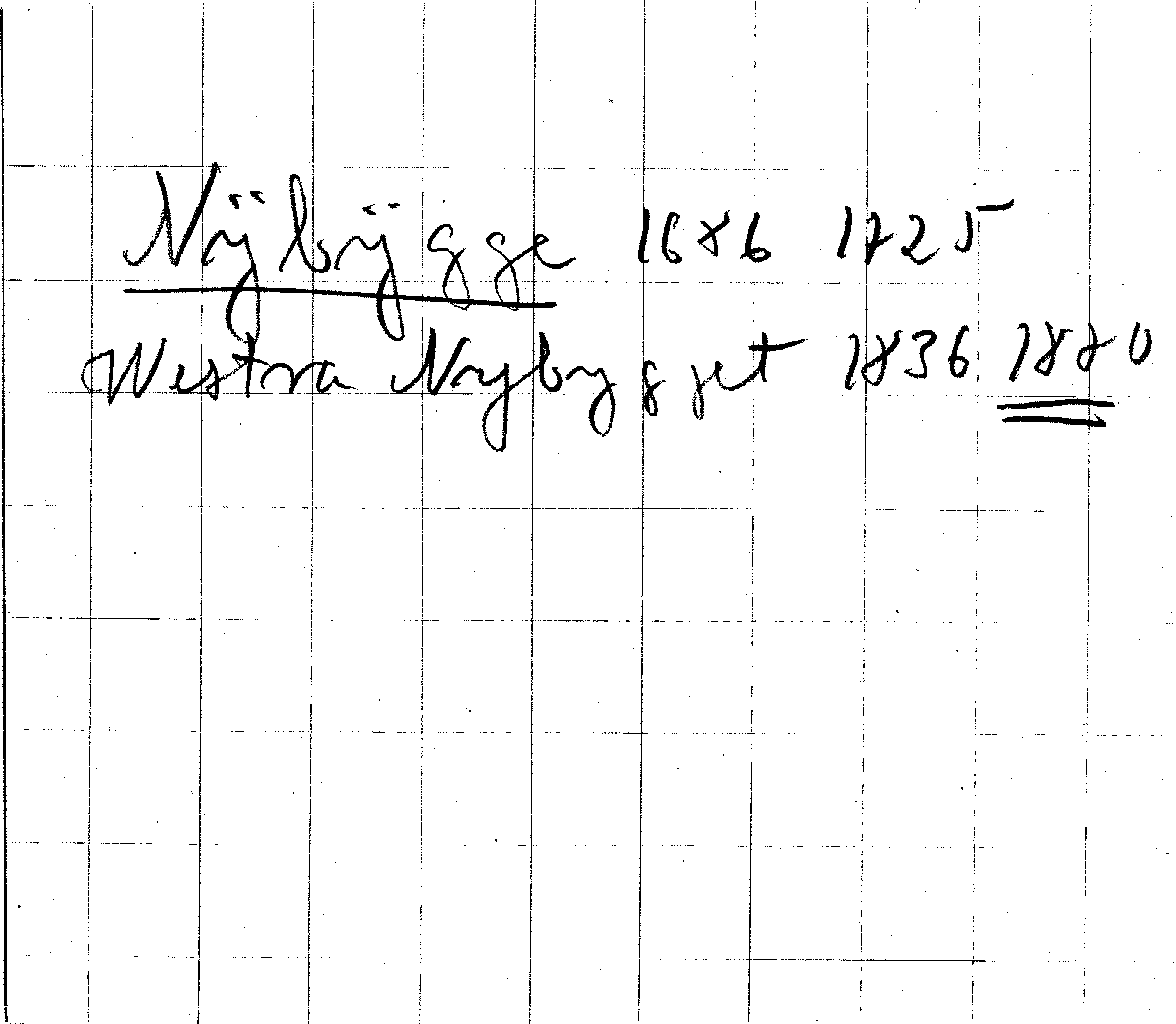 Nÿbÿgge 1686 1725
Westra Nybygget 1836 1880